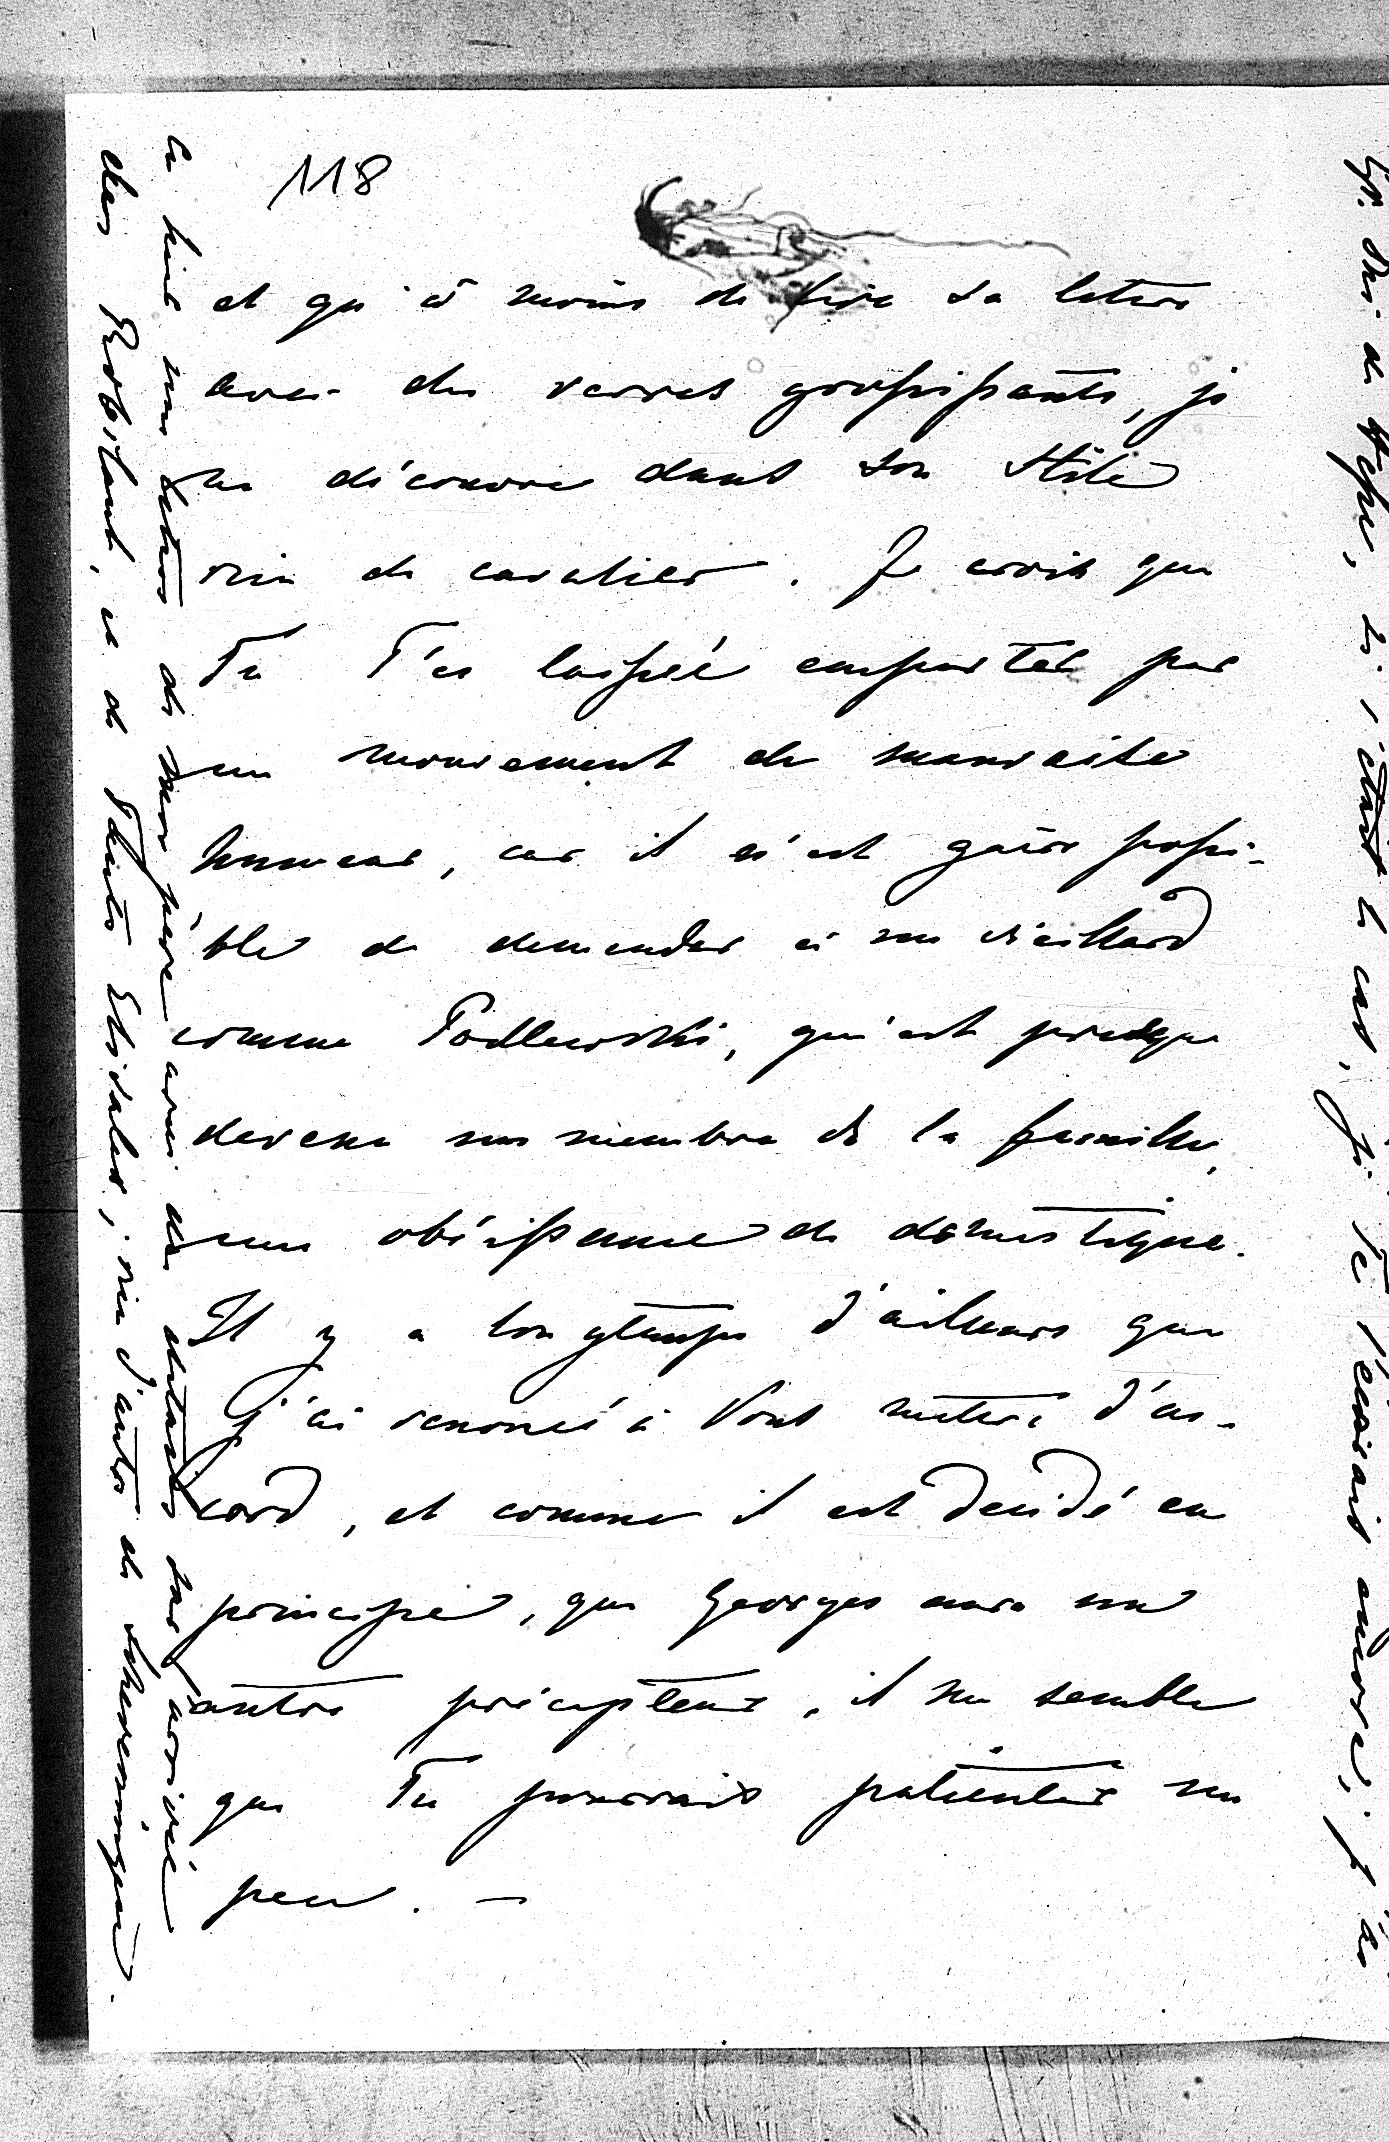 118
et qu'à moins de lire sa lettre
avec des verres grossissants, je
ne découvre dans son stile
rien de cavalier. Je crois que
Tu T'es laissée emporter par
un mouvement de mauvaise
humeur, car il n'est guère possi-
ble de demander à un vieillard
comme Podlewski, qui est presque
devenu un membre de la famille,
une obéissance de domestique.
Il y a longtemps d'ailleurs que
j'ai renoncé à Vous mettre d'ac-
cord, et comme il est decidé en
principe, que Georges aura un
autre précepteur, il me semble
que Tu pourrais patienter un
peu. —
une lettre de mon père avec des détails sur l'arrivée
chez Robilant, et de Thérèse rien d'autre de
si c'était le cas, je Te l'écrirais encore, j'ai